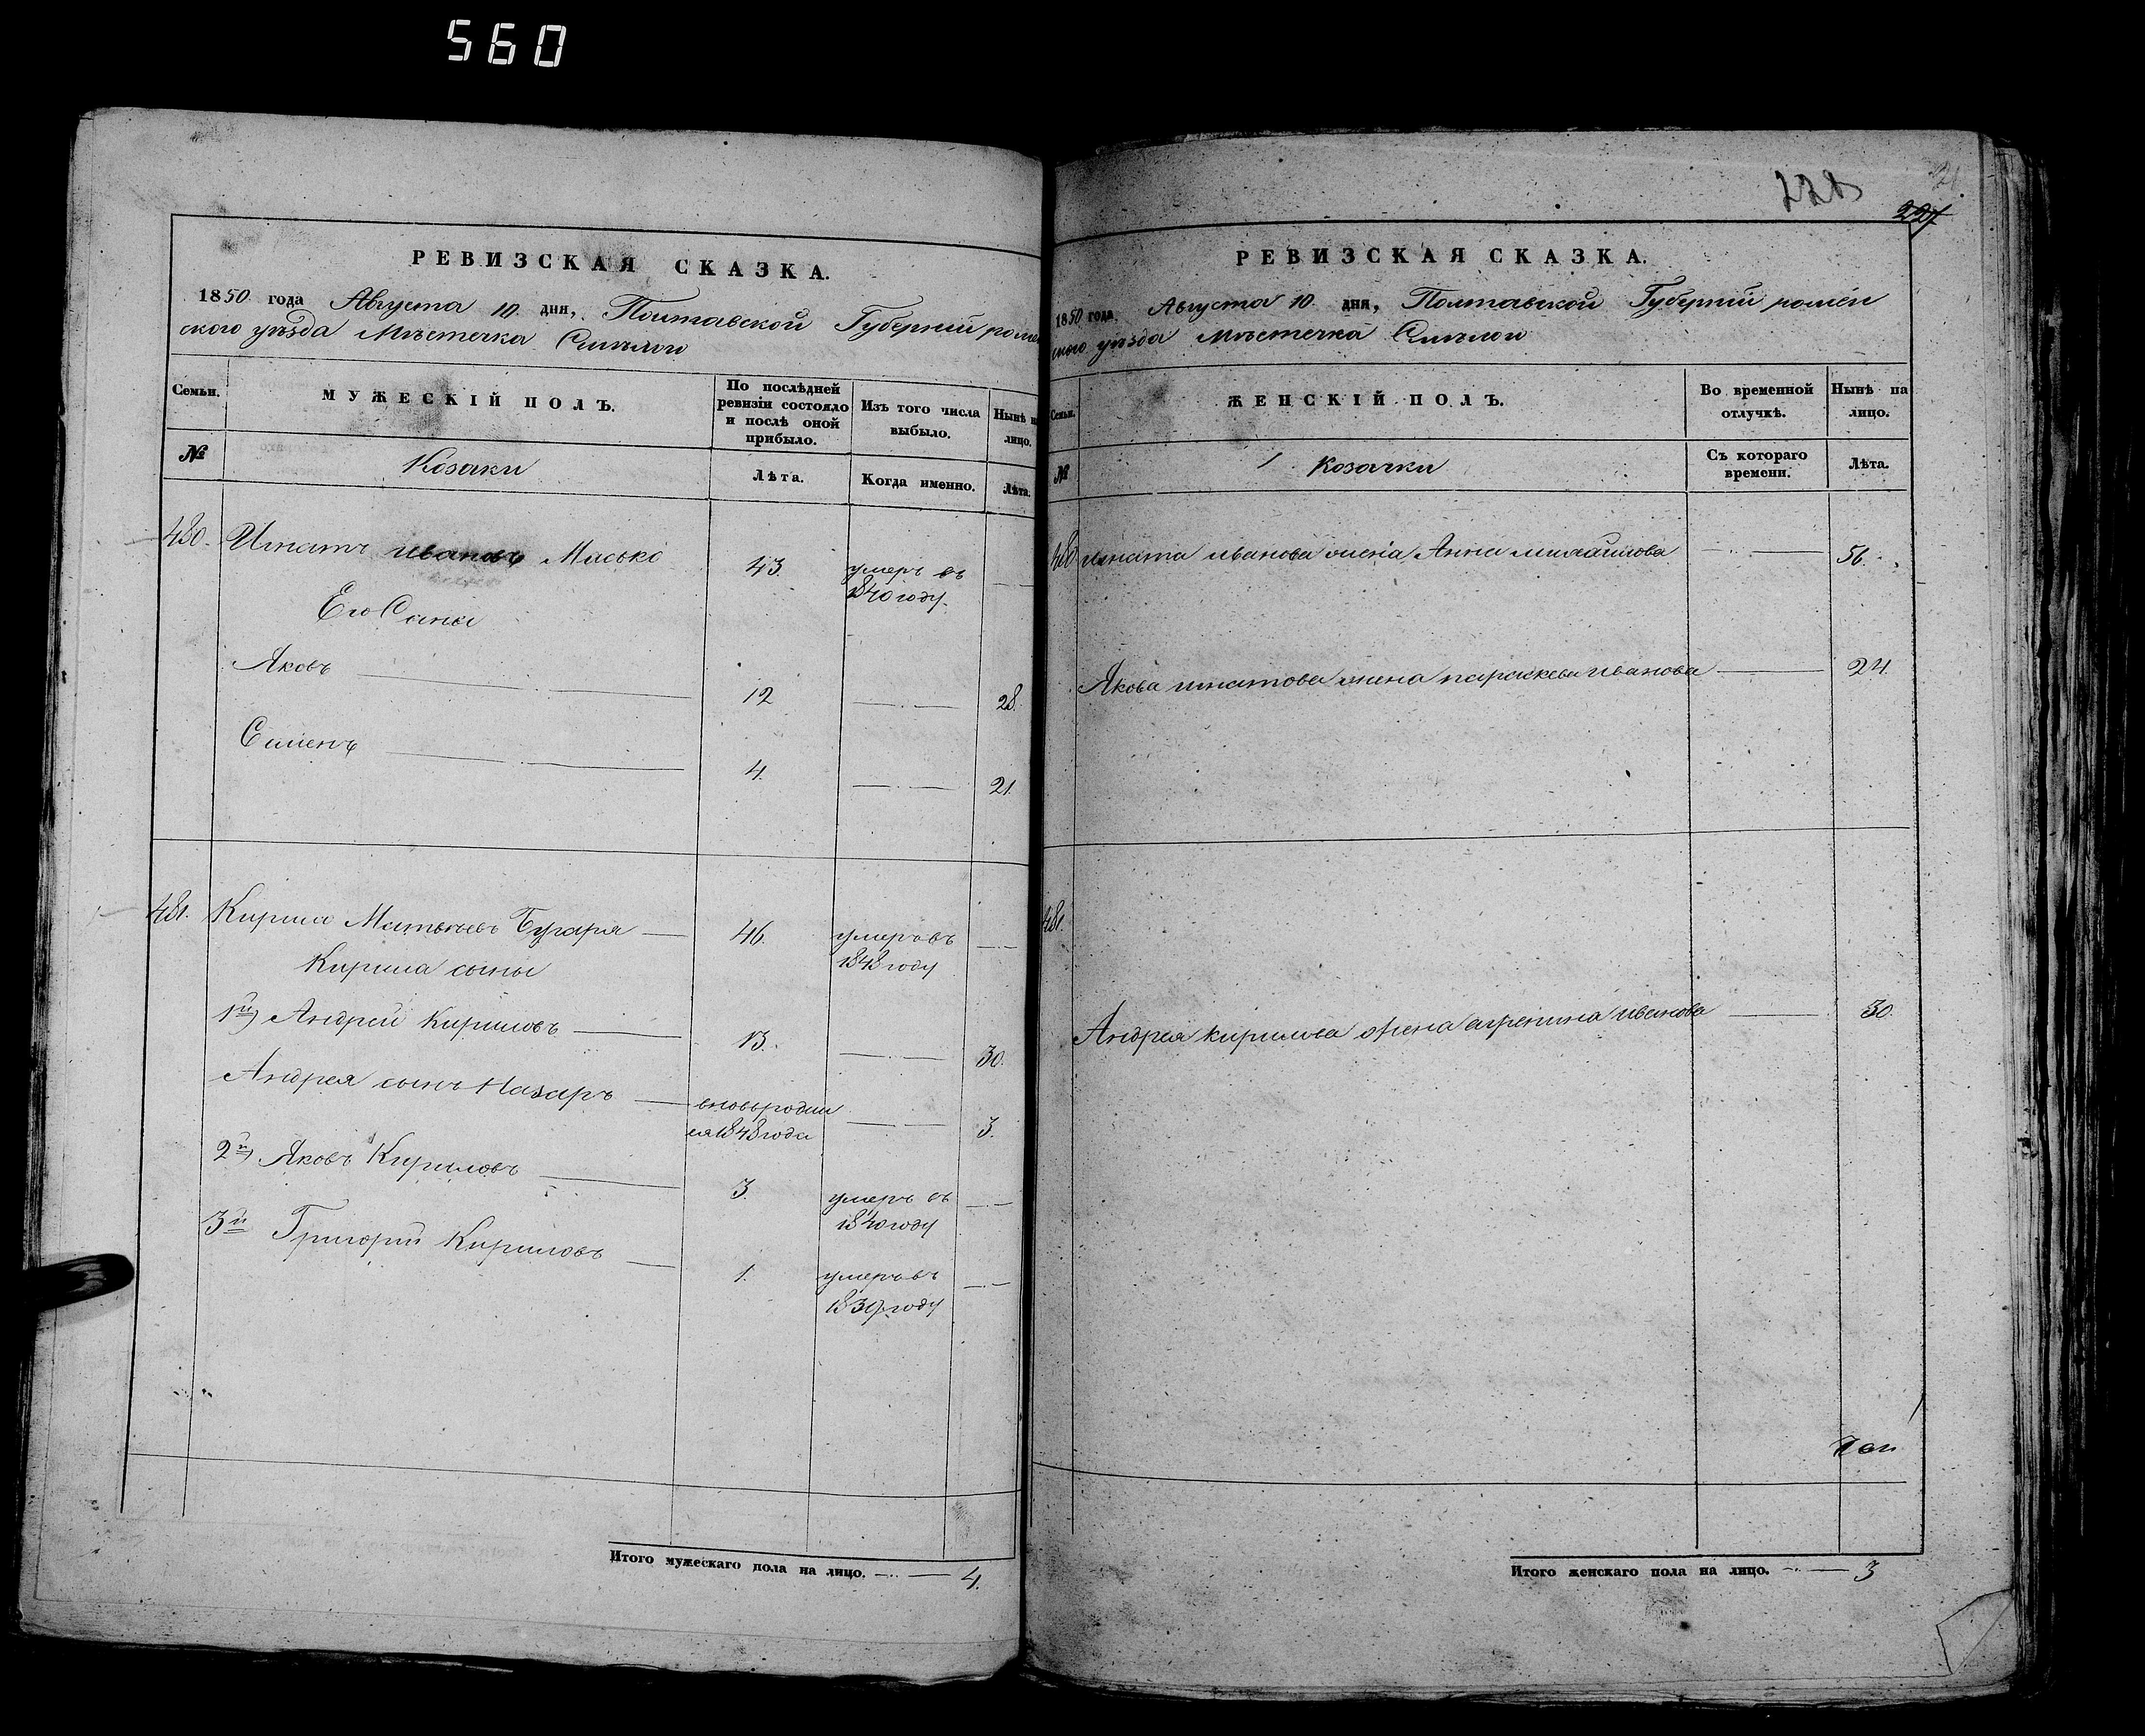 560
РЕВИЗСКАЯ СКАЗКА.
1850 года Августа 10 дня, Полтавской Губернии ромен
ского уѣзда Мѣстечка Смѣлои
Семьи.
МУЖЕСКІЙ ПОЛЪ.
По послѣдней ревизіи состояло и послѣ оной прибыло.
Изъ того числа выбыло.
Нынѣ на лицо.
№
Козаки
Лѣта.
Когда именно.
Лѣта.
480. Игнатъ Ивановъ Масько 43. умеръ въ
1840 году.
Его Сыны
Яковъ 12 28.
Семенъ 4. 21.
481. Кирила Матвѣевъ Бугаря 46. умеръ въ
1848 году
Кирила сыны
1й) Андрей Кириловъ 13. 30.
Андрея сынъ Назаръ вновьродил 3.
ся 1848 года
2й) Яковъ Кириловъ 3. умеръ въ
1840 году
3й Григорий Кириловъ 1. умеръ въ
1839 году
Итого мужескаго пола на лицо. 4.
228
227
РЕВИЗСКАЯ СКАЗКА.
1850 года Августа 10 дня, Полтавской Губернии ромен
ского уѣзда Мѣстечка Смѣлои
Семьи.
ЖЕНСКІЙ ПОЛЪ.
Во временной отлучкѣ.
Нынѣ на лицо.
№
Козачки
Съ котораго времени.
Лѣта.
480 Игната иванова жена Анна михайлова 56.
Якова игнатова жена параскева иванова 24.
481.
Андрея кирилова жена агрепина иванова 30.
Итого женскаго пола на лицо. 3